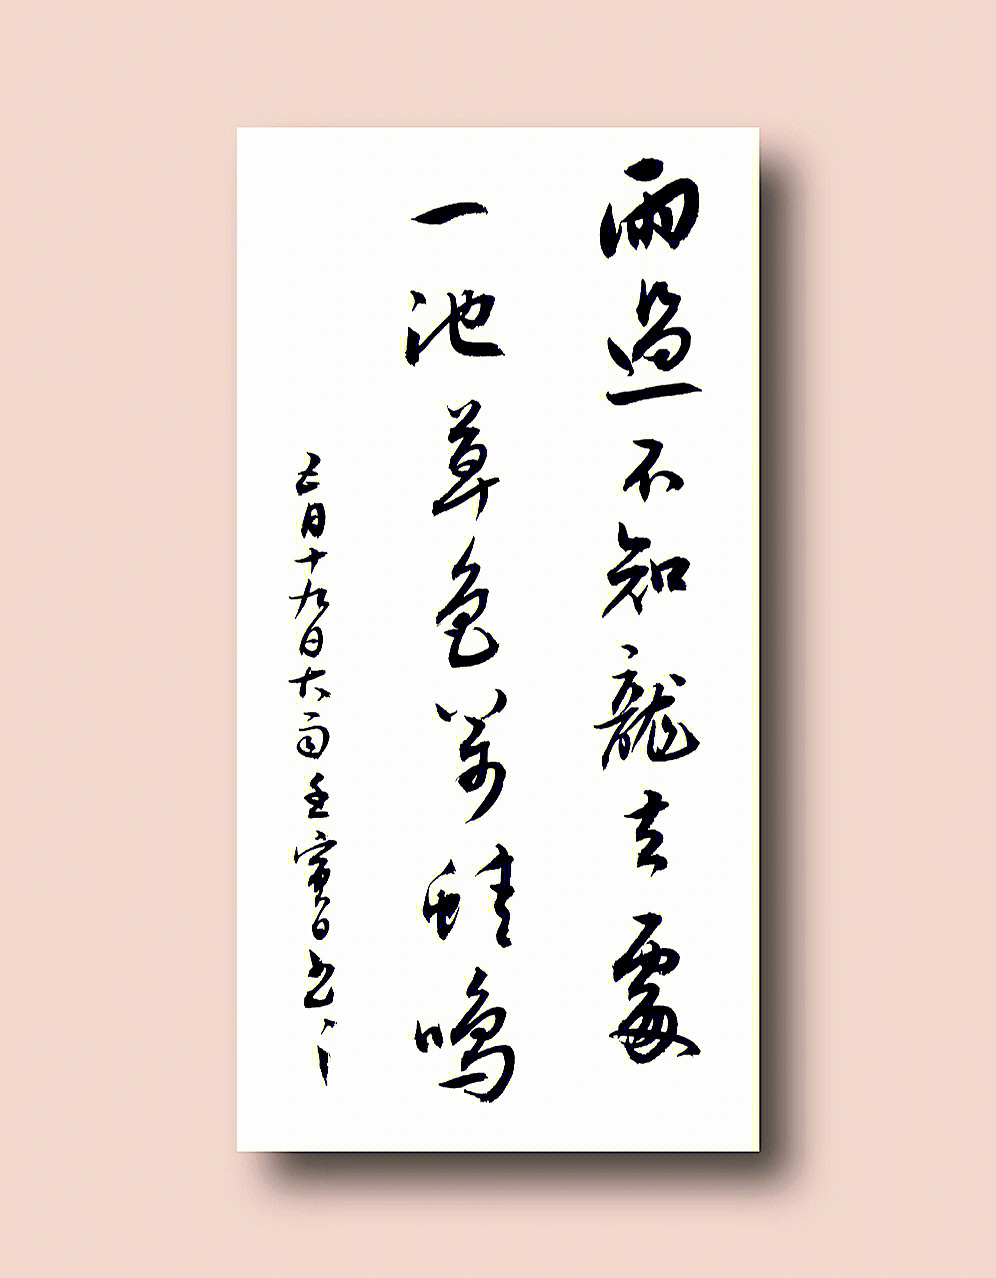 雨過不知龍去處
一池草色萬蛙鳴
五月十九日大雨壬寅日書